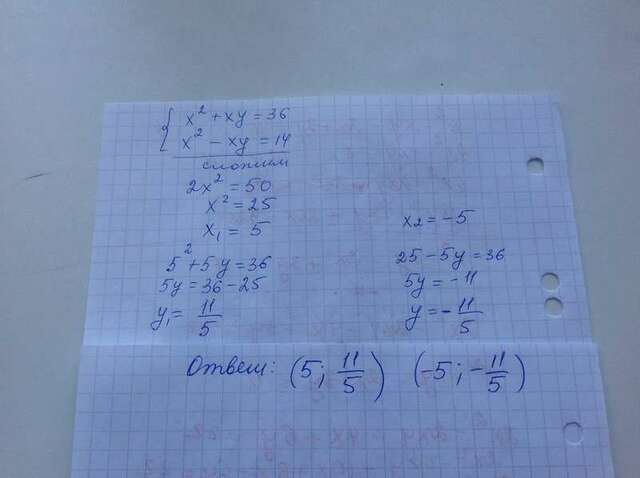 { x² + xy = 36
x² - xy = 14
сложим
2x² = 50
x² = 25
x₁ = 5
5² + 5y = 36
5y = 36 - 25
y₁ = 11/5
x2 = -5
25 - 5y = 36
5y = -11
y = -11/5
Ответ: (5; 11/5) (-5; -11/5)